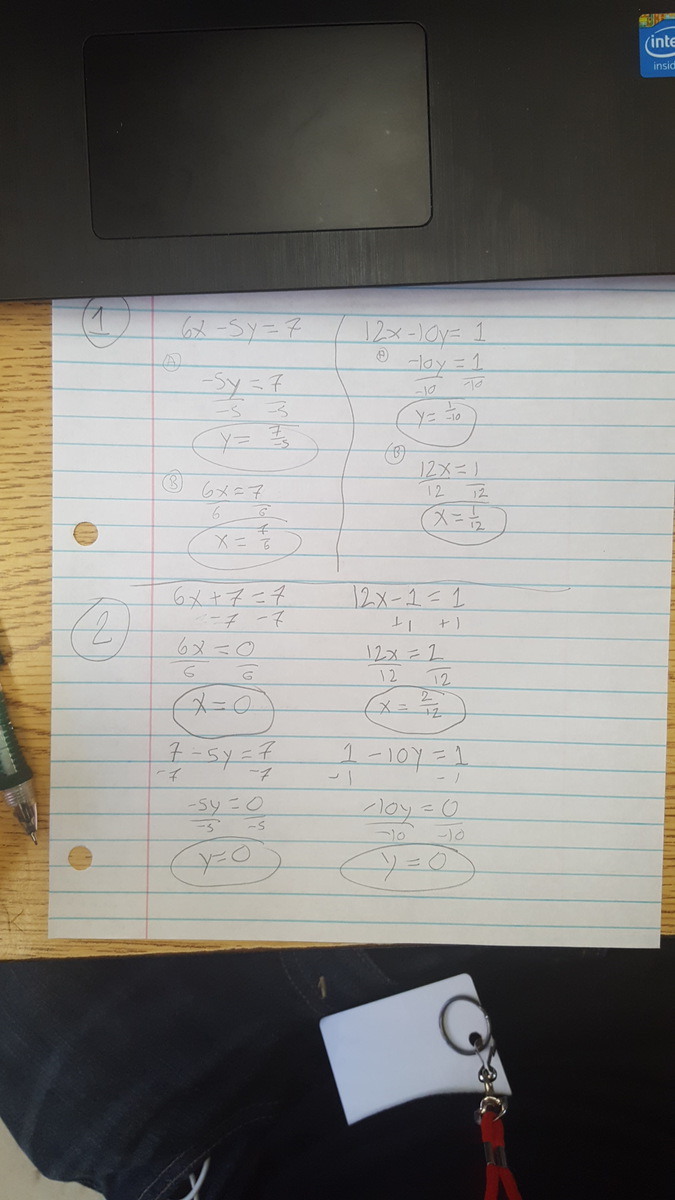 intel
inside
1
6x - 5y = 7
A
-5y = 7
-5 -5
y = 7/-5
B
6x = 7
6 6
x = 7/6
12x - 10y = 1
A
-10y = 1
-10 -10
y = 1/-10
B
12x = 1
12 12
x = 1/12
2
6x + 7 = 7
-7 -7
6x = 0
6 6
x = 0
7 - 5y = 7
-7 -7
-5y = 0
-5 -5
y = 0
12x - 1 = 1
+1 +1
12x = 2
12 12
x = 2/12
1 - 10y = 1
-1 -1
-10y = 0
-10 -10
y = 0